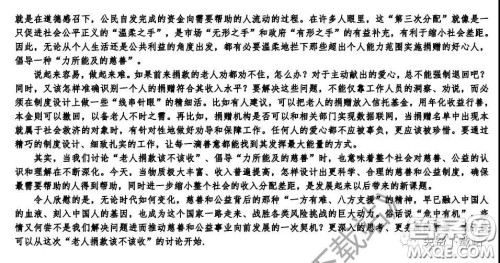 就是在道德感召下，公民自发完成的资金向需要帮助的人流动的过程。在许多人眼里，这“第三次分配”就像是一
只促进社会公平正义的“温柔之手”，是市场“无形之手”和政府“有形之手”的有益补充，有利于缩小社会差距。
因此，无论从个人生活还是公共利益的角度出发，都有必要温柔地拦下那些超出个人能力范围实施捐赠的好心人，
倡导一种“力所能及的慈善”。
说起来容易，做起来难。如果前来捐款的老人劝都劝不住，怎么办？对于主动献出的爱心，总不能强制退回吧？
同时，又该怎样准确识别一个人的捐赠符合其收入水平？要解决这些问题，不能仅靠工作人员的洞察、劝说，而必
须在制度设计上做一些“线串针眼”的精细活。比如有人建议，可以把老人的捐赠放入信托基金，用年化收益行善，
本金则可以撤回，以备老人不时之需。再比如，捐赠机构是否可以和相关部门实现数据联网，当捐赠名单中出现本
就属于社会救济的对象时，有针对性地做好劝导和保障工作。任何人的爱心都不应被辜负，更应该被珍惜。要通过
精巧的制度设计、细致扎实的工作，让每一滴善意都能找到其发挥最大能量的方式。
其实，当我们讨论“老人捐款该不该收”、倡导“力所能及的慈善”时，也意味着整个社会对慈善、公益的认
识和理解在不断深化。今天，当物质极大丰富、收入普遍提高，怎样设计出更科学、合理的慈善和公益制度，确保
最需要帮助的人得到帮助，同时进一步缩小整个社会的收入分配差距，是发展起来以后带来的新课题。
令人欣慰的是，无论时代如何变化，慈善和公益背后的那种“一方有难、八方支援”的精神，早已融入中国人
的血液、刻入中国人的基因，也成为这个国家一路走来、战胜各类风险挑战的巨大动力。俗话说“危中有机”，疫
情又何尝不是我们解决问题进而推动慈善和公益事业向前发展的一次契机？更深入的思考、
可以从这次“老人捐款该不该收”的讨论开始.